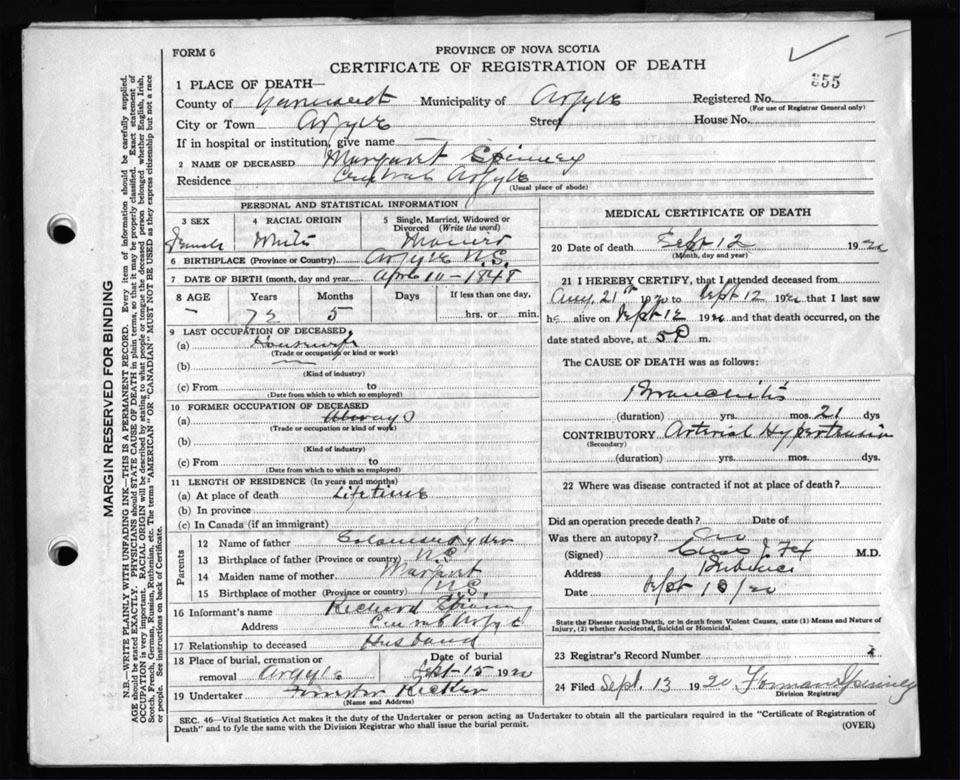 FORM 6
PROVINCE OF NOVA SCOTIA
CERTIFICATE OF REGISTRATION OF DEATH
355
1 PLACE OF DEATH—
County of Yarmouth Municipality of Argyle Registered No.
(For use of Registrar General only)
City or Town Argyle Street House No.
If in hospital or institution, give name
2 NAME OF DECEASED Margaret Spinney
Residence Central Argyle
(Usual place of abode)
PERSONAL AND STATISTICAL INFORMATION
3 SEX 4 RACIAL ORIGIN 5 Single, Married, Widowed or Divorced (Write the word)
Female White Married
6 BIRTHPLACE (Province or Country) Argyle N.S.
7 DATE OF BIRTH (month, day and year) April 10 - 1848
8 AGE Years Months Days If less than one day,
– 72 5 hrs. or min.
9 LAST OCCUPATION OF DECEASED:
(a) Housewife
(Trade or occupation or kind or work)
(b) —
(Kind of industry)
(c) From to
(Date from which to which so employed)
10 FORMER OCCUPATION OF DECEASED
(a) Always
(Trade or occupation or kind of work)
(b)
(Kind of industry)
(c) From to
(Date from which to which so employed)
11 LENGTH OF RESIDENCE (In Years and Months)
(a) At place of death Lifetime
(b) In province
(c) In Canada (if an immigrant)
Parents
12 Name of father Ryder
13 Birthplace of father (Province or country) N.S.
14 Maiden name of mother Margaret
15 Birthplace of mother (Province or country) N.S.
16 Informant's name Richard Spinney
Address Central Argyle
17 Relationship to deceased Husband
18 Place of burial, cremation or removal Argyle Date of burial Sept 15 1920
19 Undertaker Forrester
(Name and Address)
MEDICAL CERTIFICATE OF DEATH
20 Date of death Sept 12 1920
(Month, day and year)
21 I HEREBY CERTIFY, that I attended deceased from
Aug. 21st 1920 to Sept 12 1920 that I last saw
he alive on Sept 12 1920 and that death occurred, on the
date stated above, at 5 P m.
The CAUSE OF DEATH was as follows:
Bronchitis
(duration) yrs. mos. 21 dys
CONTRIBUTORY Arterial Hypertension
(Secondary)
(duration) yrs. mos. dys.
22 Where was disease contracted if not at place of death?
Did an operation precede death? Date of
Was there an autopsy? no
(Signed) Chas J. Fox M.D.
Address Pubnico
Date Sept 13/20
State the Disease causing Death, or in death from Violent Causes, state (1) Means and Nature of
Injury, (2) whether Accidental, Suicidal or Homicidal.
23 Registrar's Record Number
24 Filed Sept. 13 1920 Forman Spinney
Division Registrar
SEC. 46—Vital Statistics Act makes it the duty of the Undertaker or person acting as Undertaker to obtain all the particulars required in the "Certificate of Registration of
Death" and to fyle the same with the Division Registrar who shall issue the burial permit.
(OVER)
MARGIN RESERVED FOR BINDING
N.B.—WRITE PLAINLY WITH UNFADING INK—THIS IS A PERMANENT RECORD. Every item of information should be carefully supplied.
AGE should be stated EXACTLY. PHYSICIANS should STATE CAUSE OF DEATH in plain terms, so that it may be properly classified. Exact statement of
OCCUPATION is very important. RACIAL ORIGIN will be described by stating to what people or tongue the deceased person belonged whether English, Irish,
Scotch, French, German, Russian, Ruthenian, etc. The terms "AMERICAN" OR "CANADIAN" MUST NOT BE USED as they express citizenship but not a race
or people. See instructions on back of Certificate.